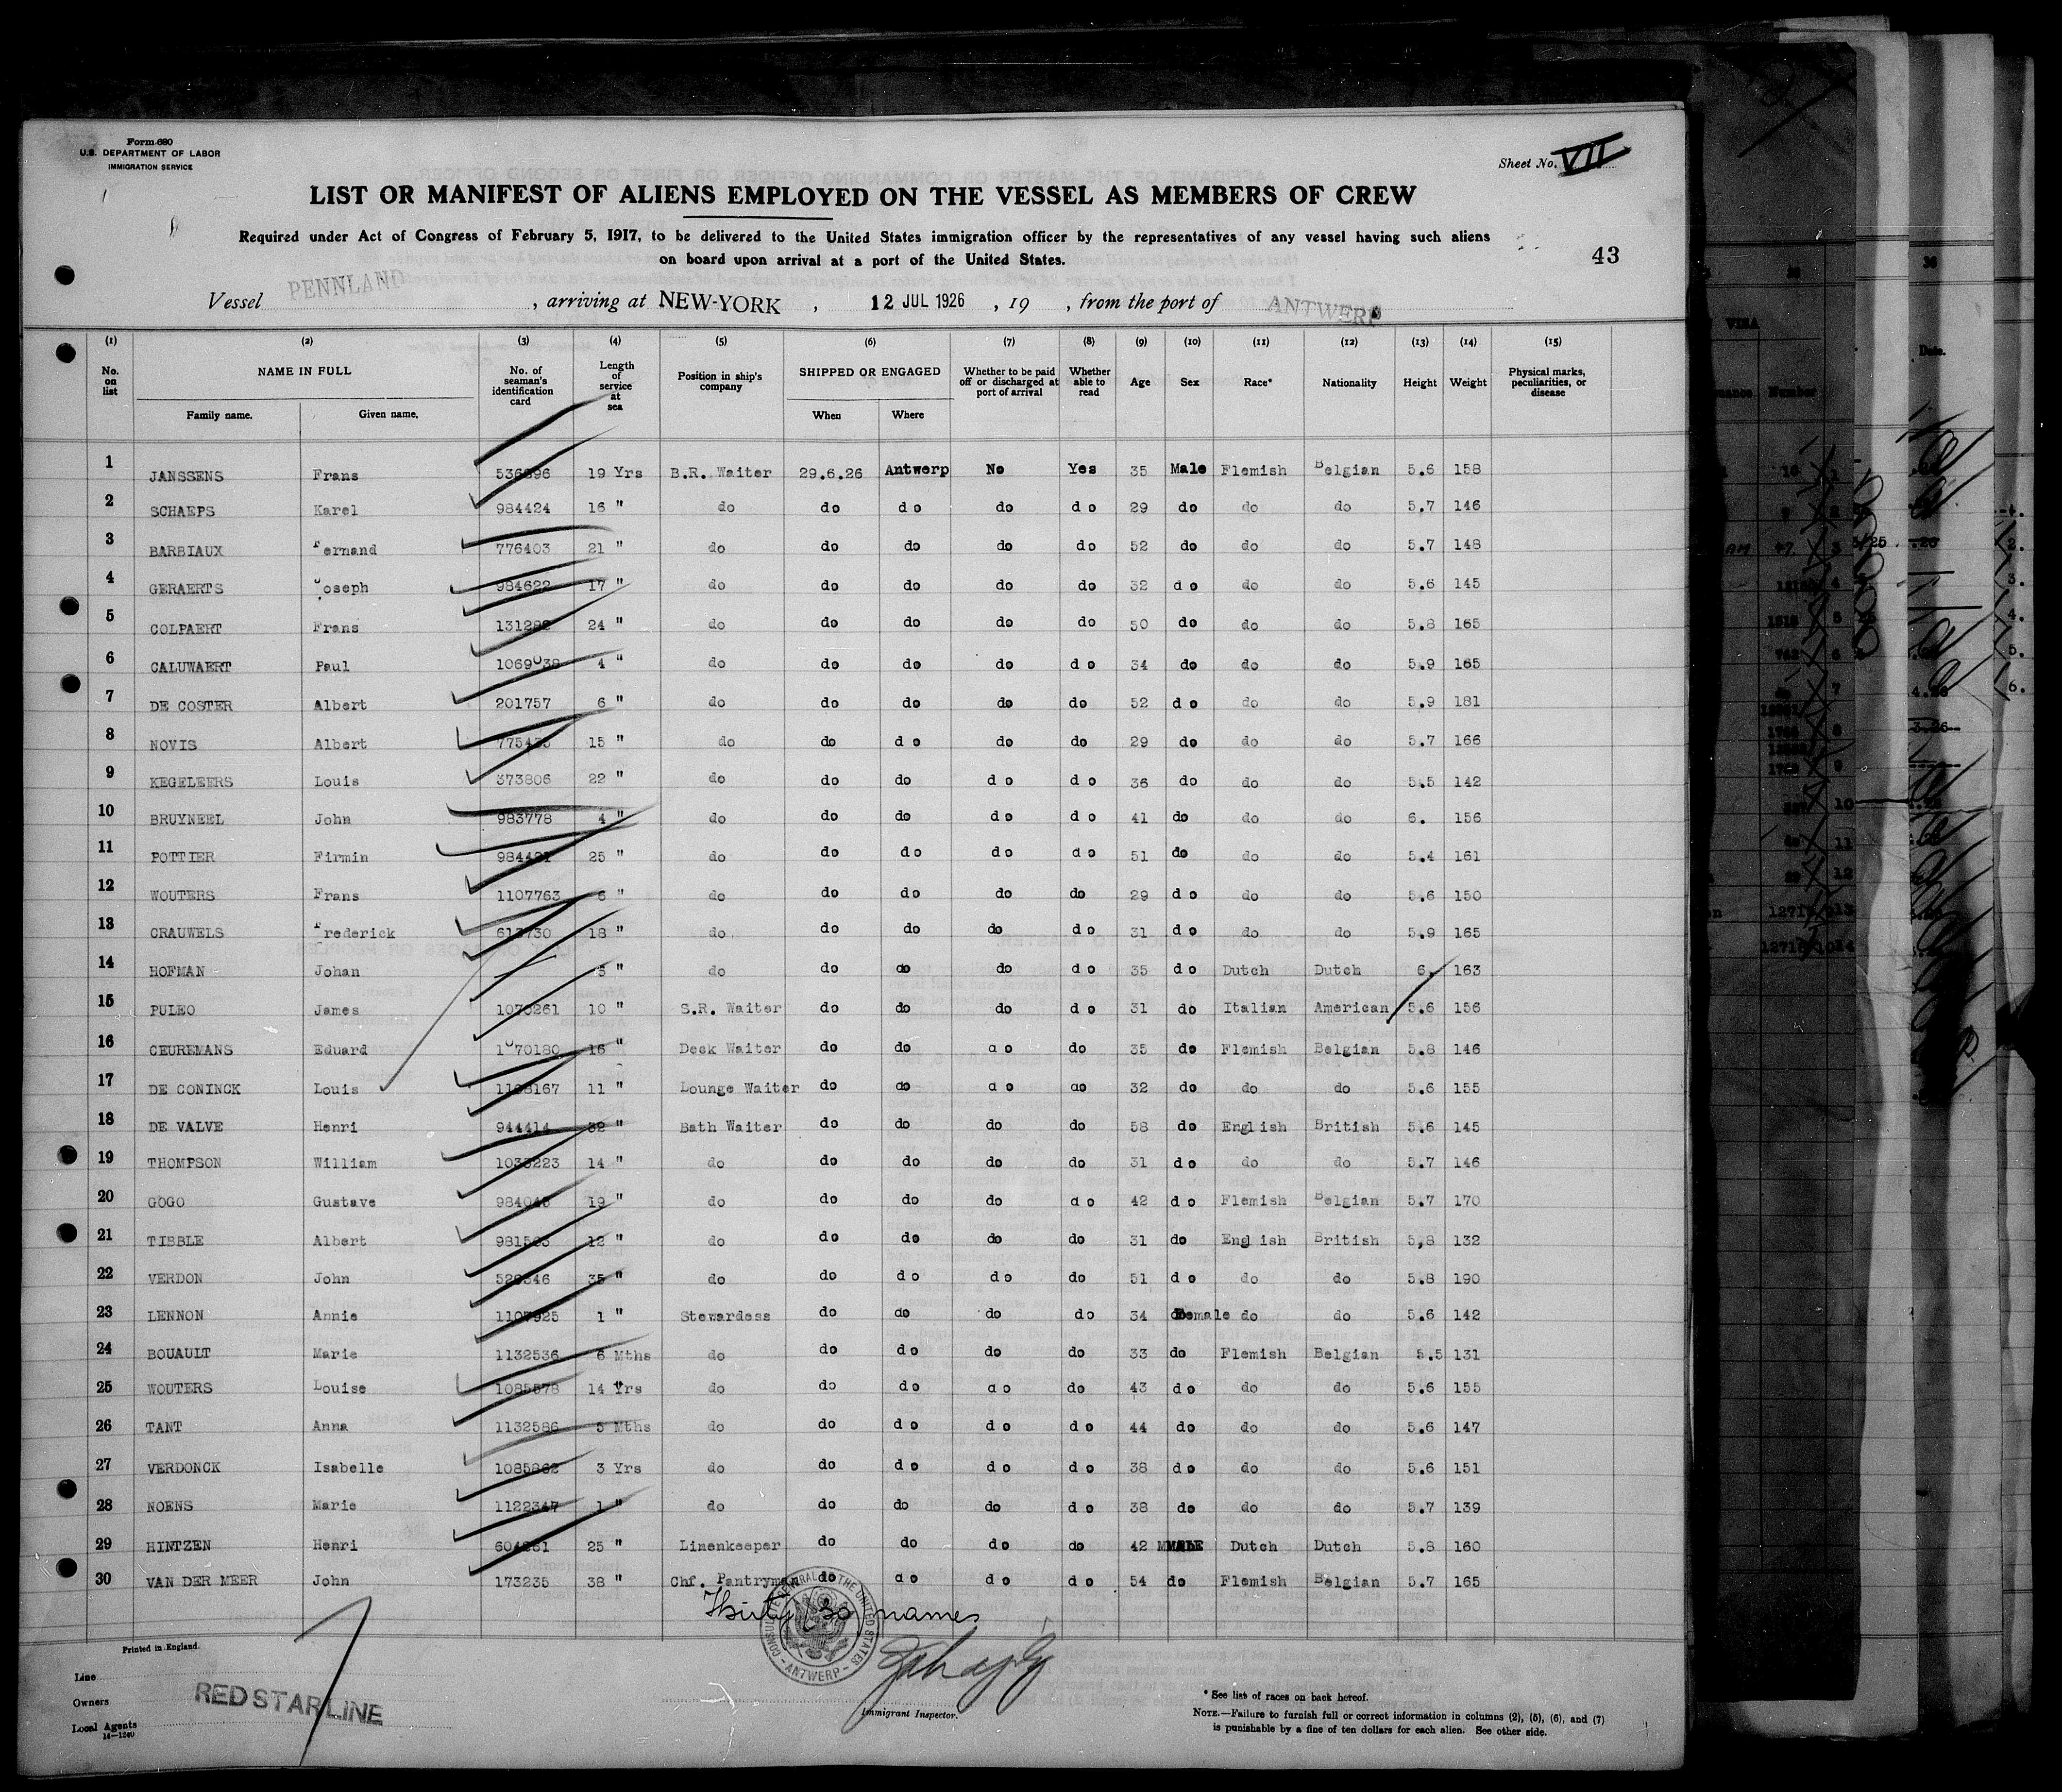 Form 680
U.S. DEPARTMENT OF LABOR
IMMIGRATION SERVICE
Sheet No. VII
LIST OR MANIFEST OF ALIENS EMPLOYED ON THE VESSEL AS MEMBERS OF CREW
Required under Act of Congress of February 5, 1917, to be delivered to the United States immigration officer by the representatives of any vessel having such aliens
on board upon arrival at a port of the United States.
43
Vessel PENNLAND, arriving at NEW-YORK, 12 JUL 1926, 19 , from the port of ANTWERP
(1) (2) (3) (4) (5) (6) (7) (8) (9) (10) (11) (12) (13) (14) (15)
No. on list NAME IN FULL No. of seaman's identification card Length of service at sea Position in ship's company SHIPPED OR ENGAGED Whether to be paid off or discharged at port of arrival Whether able to read Age Sex Race* Nationality Height Weight Physical marks, peculiarities, or disease
Family name. Given name. When Where
1 JANSSENS Frans 536896 19 Yrs B.R. Waiter 29.6.26 Antwerp No Yes 35 Male Flemish Belgian 5.6 158
2 SCHAEPS Karel 984424 16 " do do do do do 29 do do do 5.7 146
3 BARBIAUX Fernand 776403 21 " do do do do do 52 do do do 5.7 148
4 GERAERTS Joseph 984622 17 " do do do do do 32 do do do 5.6 145
5 COLPAERT Frans 24 " do do do do do 50 do do do 5.8 165
6 CALUWAERT Paul 1069038 4 " do do do do do 34 do do do 5.9 165
7 DE COSTER Albert 201757 6 " do do do do do 52 do do do 5.9 181
8 NOVIS Albert 15 " do do do do do 29 do do do 5.7 166
9 KEGELEERS Louis 373806 22 " do do do do do 36 do do do 5.5 142
10 BRUYNEEL John 983778 4 " do do do do do 41 do do do 6. 156
11 POTTIER Firmin 984421 25 " do do do do do 51 do do do 5.4 161
12 WOUTERS Frans 1107763 6 " do do do do do 29 do do do 5.6 150
13 CRAUWELS Frederick 613730 18 " do do do do do 31 do do do 5.9 165
14 HOFMAN Johan 5 " do do do do do 35 do Dutch Dutch 6. 163
15 PULEO James 1070261 10 " S.R. Waiter do do do do 31 do Italian American 5.6 156
16 CEUREMANS Eduard 1070180 16 " Deck Waiter do do do do 35 do Flemish Belgian 5.8 146
17 DE CONINCK Louis 11 " Lounge Waiter do do do do 32 do do do 5.6 155
18 DE VALVE Henri 944414 32 " Bath Waiter do do do do 58 do English British 5.6 145
19 THOMPSON William 1033223 14 " do do do do do 31 do do do 5.7 146
20 GOGO Gustave 19 " do do do do do 42 do Flemish Belgian 5.7 170
21 TIBBLE Albert 12 " do do do do do 31 do English British 5,8 132
22 VERDON John 35 " do do do do do 51 do do do 5.8 190
23 LENNON Annie 1107925 1 " Stewardess do do do do 34 Female do do 5.6 142
24 BOUAULT Marie 1132536 6 Mths do do do do do 33 do Flemish Belgian 5.5 131
25 WOUTERS Louise 1085578 14 Yrs do do do do do 43 do do do 5.6 155
26 TANT Anna 1132586 5 Mths do do do do do 44 do do do 5.6 147
27 VERDONCK Isabelle 1085862 3 Yrs do do do do do 38 do do do 5.6 151
28 NOENS Marie 1122347 1 " do do do do do 38 do do do 5.7 139
29 HINTZEN Henri 25 " Linenkeeper do do do do 42 MALE Dutch Dutch 5.8 160
30 VAN DER MEER John 173235 38 " Chf. Pantryman do do do do 54 do Flemish Belgian 5.7 165
Thirty 30 names
CONSULATE GENERAL OF THE UNITED STATES
ANTWERP
Printed in England.
Line
Owners
RED STAR LINE
Local Agents
14-1240
Immigrant Inspector.
* See list of races on back hereof.
NOTE.—Failure to furnish full or correct information in columns (2), (5), (6), and (7)
is punishable by a fine of ten dollars for each alien. See other side.